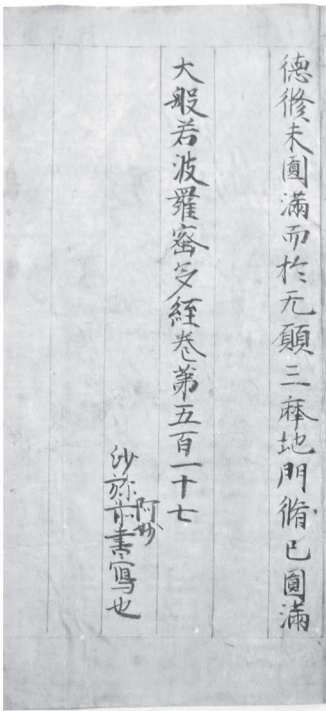 德脩未圓滿而於无願三摩地門脩已圓滿
大般若波羅蜜多經卷第五百一十七
沙弥阿妙書寫也